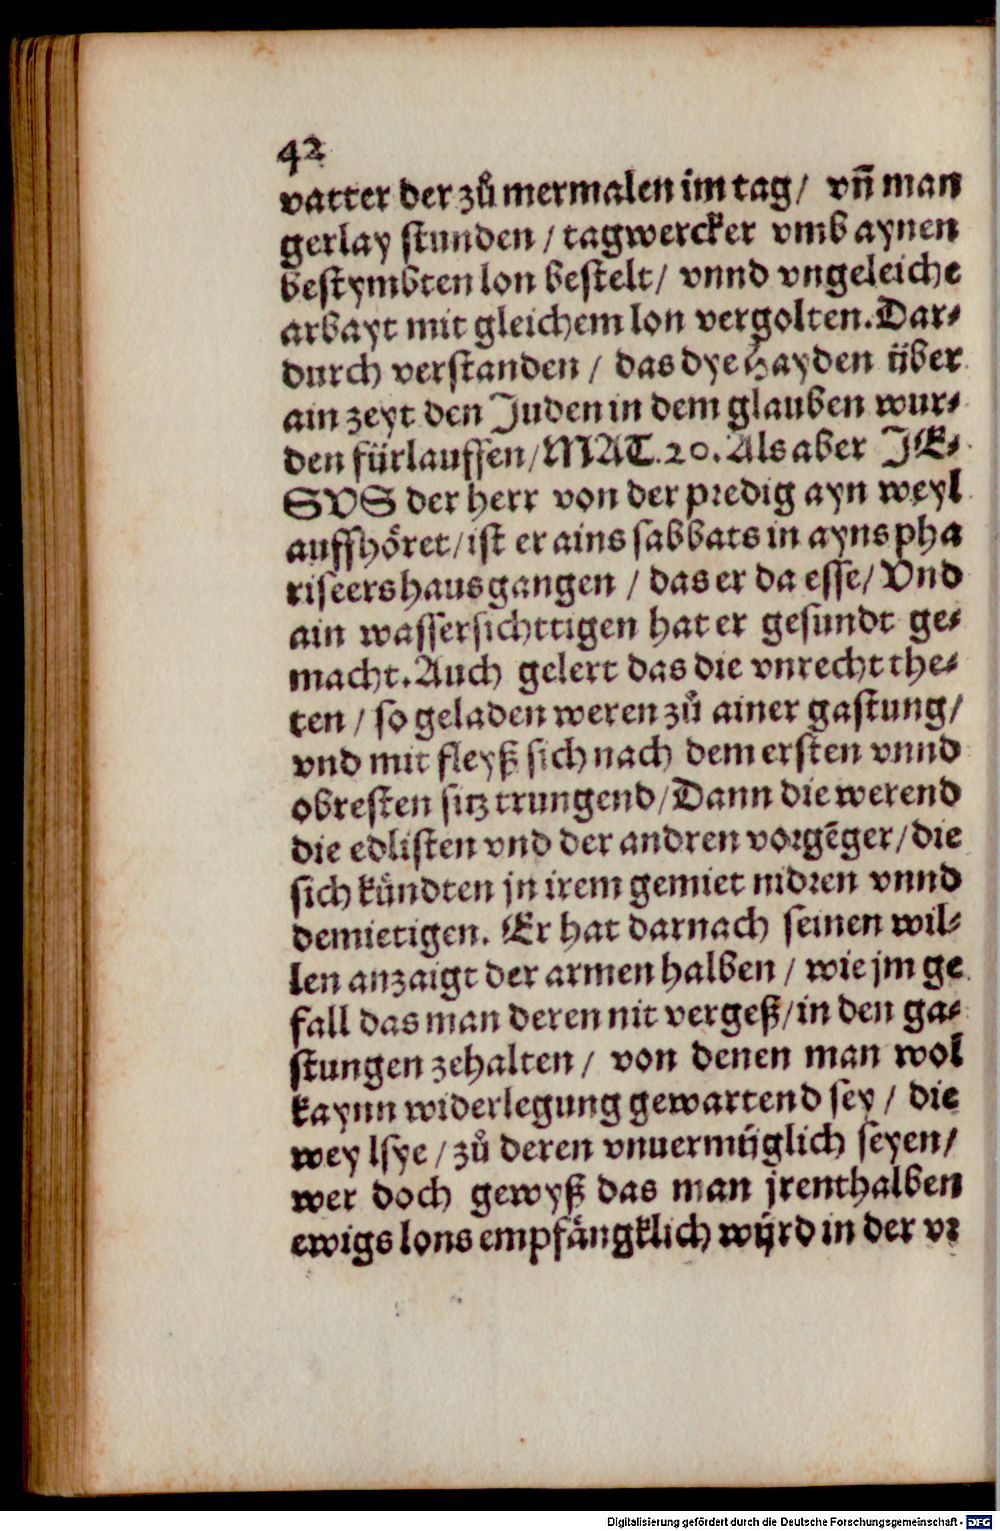 42
vatter der zuͦ mermalen im tag/ vn̄ man
gerlay stunden / tagwercker vmb aynen
bestymbten lon bestelt/ vnnd vngeleiche
arbayt mit gleichem lon vergolten. Dar⸗
durch verstanden / das dye Hayden über
ain zeyt den Juden in dem glauben wur⸗
den fürlauffen/ MAT. 20. Als aber JE⸗
SVS der herr von der predig ayn weyl
auffhöret/ ist er ains sabbats in ayns pha
riseers haus gangen / das er da esse/ Vnd
ain wassersichttigen hat er gesundt ge⸗
macht. Auch gelert das die vnrecht the⸗
ten / so geladen weren zuͦ ainer gastung/
vnd mit fleyß sich nach dem ersten vnnd
obresten sitz trungend/ Dann die werend
die edlisten vnd der andren vorgēger/ die
sich kündten jn irem gemiet nidren vnnd
demietigen. Er hat darnach seinen wil⸗
len anzaigt der armen halben / wie jm ge
fall das man deren nit vergeß/ in den ga⸗
stungen zehalten / von denen man wol
kaynn widerlegung gewartend sey / die
wey lsye / zuͦ deren vnuermüglich seyen/
wer doch gewyß das man jrenthalben
ewigs lons empfängklich wÿrd in der vr
Digitalisierung gefördert durch die Deutsche Forschungsgemeinschaft - DFG